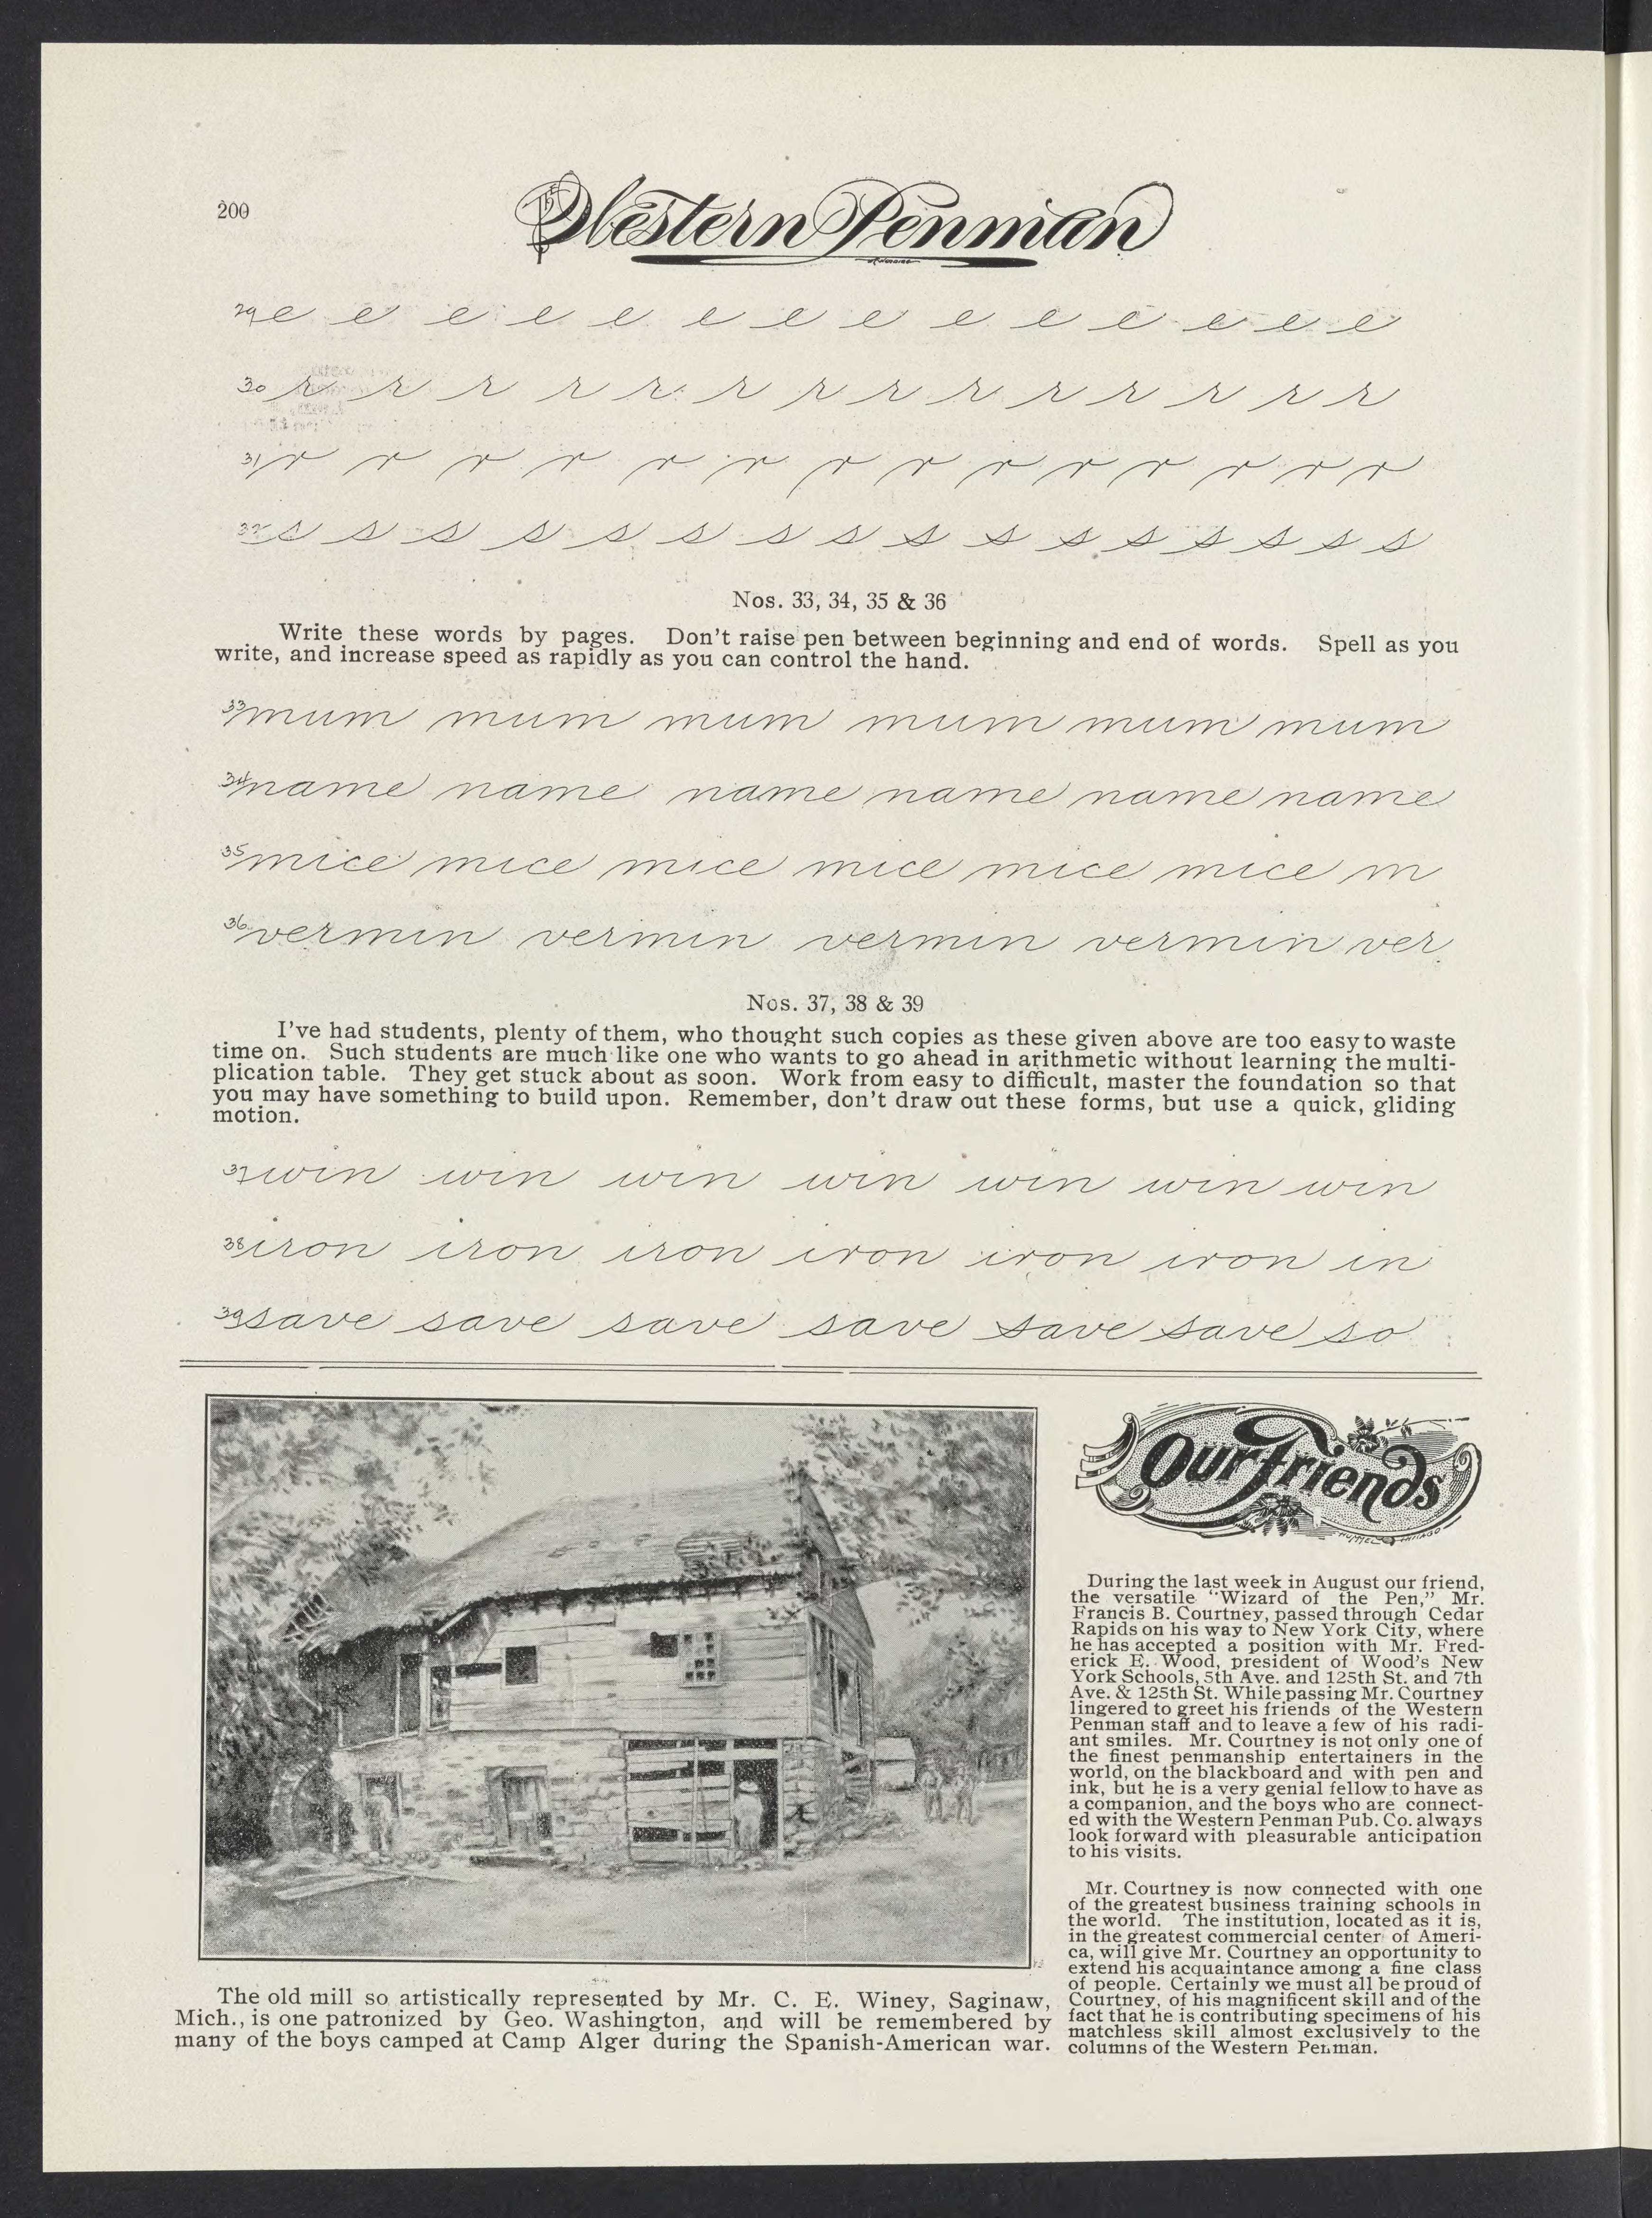 200
Western Penman
29 e e e e e e e e e e e e e e
30 r r r r r r r r r r r r r r
31 r r r r r r r r r r r r r r
32 s s s s s s s s s s s s s s s s
Nos. 33, 34, 35 & 36
Write these words by pages. Don't raise pen between beginning and end of words. Spell as you
write, and increase speed as rapidly as you can control the hand.
33 mum mum mum mum mum mum
34 name name name name name name
35 mice mice mice mice mice mice m
36 vermin vermin vermin vermin ver
Nos. 37, 38 & 39
I've had students, plenty of them, who thought such copies as these given above are too easy to waste
time on. Such students are much like one who wants to go ahead in arithmetic without learning the multi-
plication table. They get stuck about as soon. Work from easy to difficult, master the foundation so that
you may have something to build upon. Remember, don't draw out these forms, but use a quick, gliding
motion.
37 win win win win win win win
38 iron iron iron iron iron iron in
39 save save save save save save so
The old mill so artistically represented by Mr. C. E. Winey, Saginaw,
Mich., is one patronized by Geo. Washington, and will be remembered by
many of the boys camped at Camp Alger during the Spanish-American war.
Our Friends
During the last week in August our friend,
the versatile "Wizard of the Pen," Mr.
Francis B. Courtney, passed through Cedar
Rapids on his way to New York City, where
he has accepted a position with Mr. Fred-
erick E. Wood, president of Wood's New
York Schools, 5th Ave. and 125th St. and 7th
Ave. & 125th St. While passing Mr. Courtney
lingered to greet his friends of the Western
Penman staff and to leave a few of his radi-
ant smiles. Mr. Courtney is not only one of
the finest penmanship entertainers in the
world, on the blackboard and with pen and
ink, but he is a very genial fellow to have as
a companion, and the boys who are connect-
ed with the Western Penman Pub. Co. always
look forward with pleasurable anticipation
to his visits.
Mr. Courtney is now connected with one
of the greatest business training schools in
the world. The institution, located as it is,
in the greatest commercial center of Ameri-
ca, will give Mr. Courtney an opportunity to
extend his acquaintance among a fine class
of people. Certainly we must all be proud of
Courtney, of his magnificent skill and of the
fact that he is contributing specimens of his
matchless skill almost exclusively to the
columns of the Western Penman.